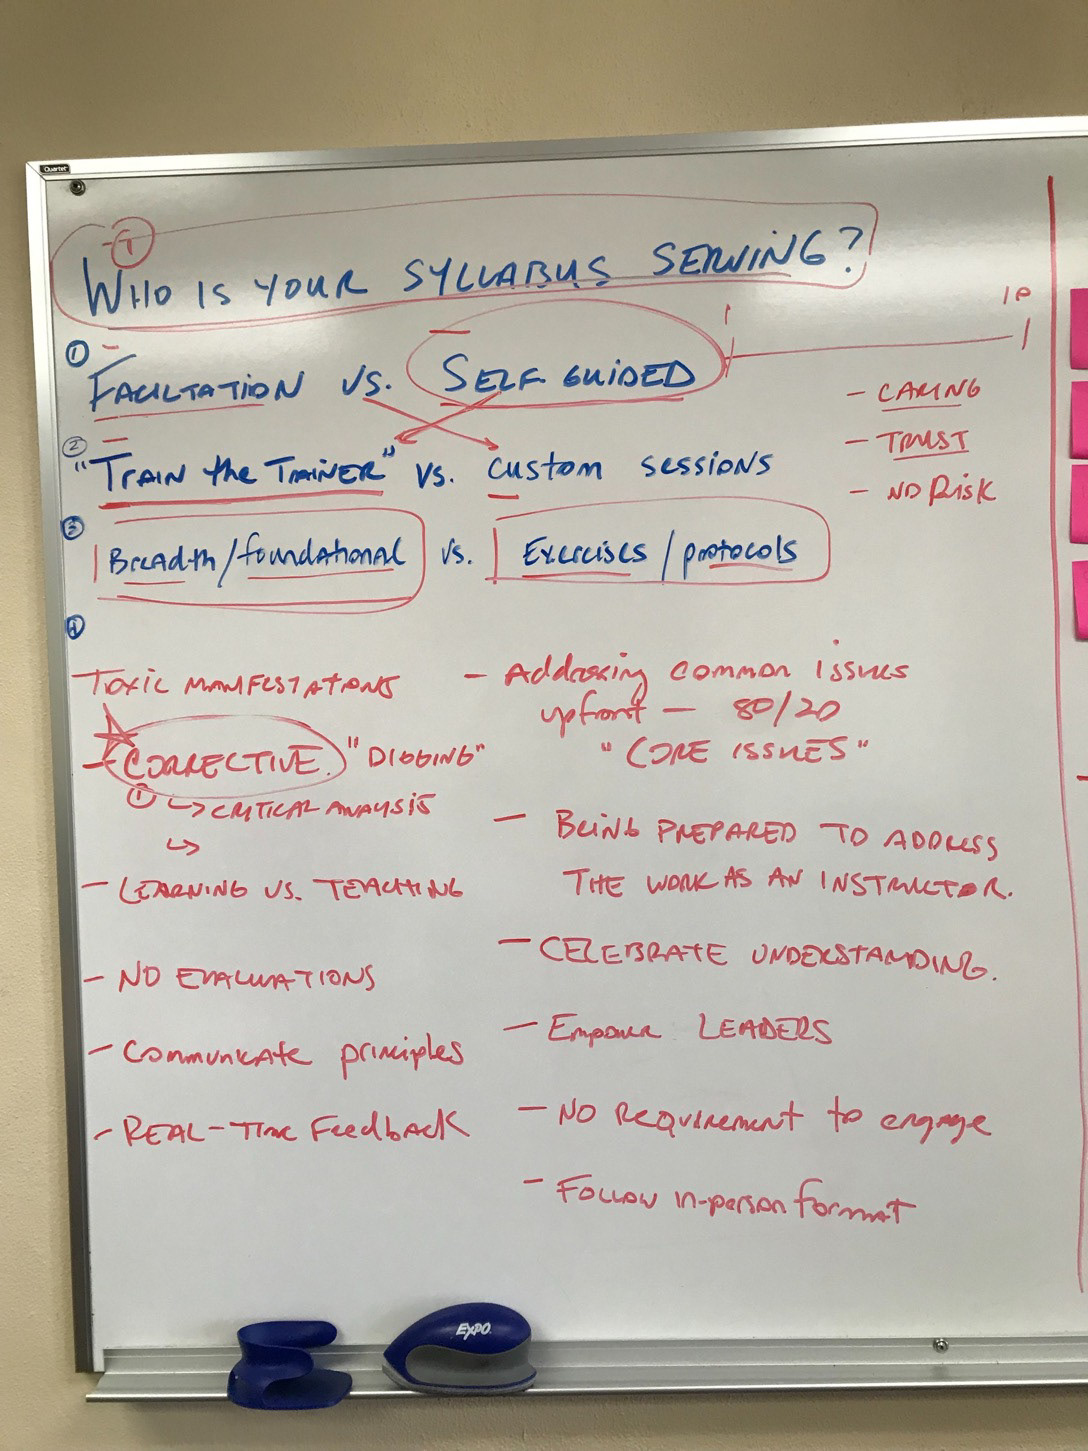 Quartet
T
WHO IS YOUR SYLLABUS SERVING?
1
FACILTATION VS. SELF GUIDED
IP
- CARING
- TRUST
- NO Risk
2
"TRAIN the TRAINER" VS. CUSTOM SESSIONS
3
Breadth/foundational VS. Exercises/protocols
4
TOXIC MANIFESTATIONS
- CORRECTIVE. "DIGGING"
1 ↳ CRITICAL ANALYSIS
↳
- LEARNING VS. TEACHING
- NO EVALUATIONS
- Communicate principles
- REAL-Time Feedback
- Addressing common issues
upfront — 80/20
"CORE ISSUES"
- BEING PREPARED TO ADDRESS
THE WORK AS AN INSTRUCTOR.
- CELEBRATE UNDERSTANDING.
- Empower LEADERS
- NO Requirement to engage
- Follow in-person format
EXPO